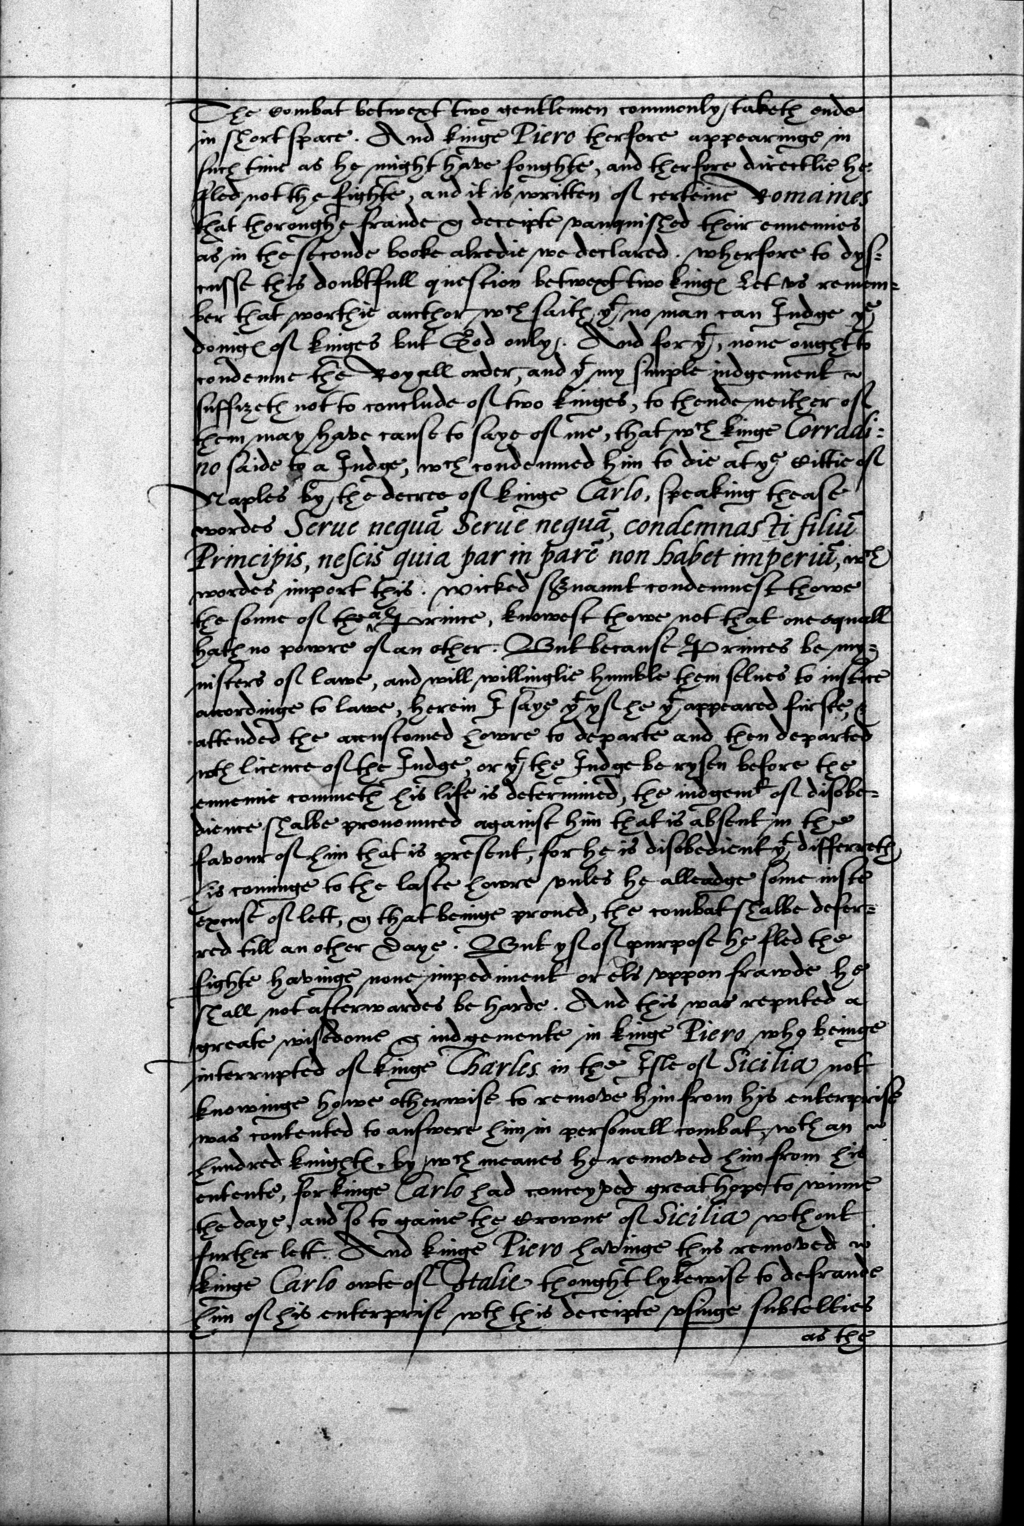 The combat betwext two gentlemen commonly taketh ende
in short space. And kinge Piero therfore appearinge in
such time as he might have foughte, and therfore directlie he
fled not the fighte, and it is written of certeine Romaines
that thoroughe fraude & deceipte vanquished their ennemies
as in the seconde booke alredie we declared. wherfore to dys=
cusse this doubtfull question betwext two kinges Let us remem=
ber that worthie aucthor, wch saith, yt no man can Judge ye
doinges of kinges but God only. And for yt, none ought to
condemne the Royall order, and yt my simple iudgement
suffizeth not to conclude of two kinges, to thende neither of
them may have cause to saye of me, that wch kinge Corradi=
no saide to a Judge, wch condemned him to die at ye Cittie of
Naples by the decree of kinge Carlo, speaking thease
wordes Serue nequā Serue nequā, condemnasti filiū
Principis, nescis quia par in parē non habet imperiū, wch
wordes import this. Wicked servaunt condemnest thowe
the sonne of the a Prince, knowest thowe not that one equall
hath no powre of an other. But because Princes be my=
nisters of lawe, and will willinglie humble them selues to iustice
accordinge to lawe, herein I saye yt yf he yt appeared firste, &
attended the accustomed howre to departe and then departed
wth licence of the Judge, or yt the Judge be rysen before the
ennemie commeth his life is determined, the iudgemt of disobe=
dience shalbe pronounced against him that is absent in the
favour of him that is present, for he is disobedient yt differreth
his cominge to the laste howre vnles he alleadge some iuste
excuse of lett, & that beinge proued, the combat shalbe defer=
red till an other Daye. But yf of purpose he fled the
fighte havinge none impediment or els vppon frawde he
shall not afterwardes be harde. And this was reputed a
greate wisedome & iudgemente in kinge Piero who beinge
interrupted of kinge Charles in the Isle of Sicilia not
knowinge howe otherwise to remove him from his enterprise
was contented to answere him in personall combat, wth an
hundred knightes, by wch meanes he removed him from his
entente, for kinge Carlo had conceyved great hope to winne
the daye, and so to gaine the Crowne of Sicilia wthout
further lett. And kinge Piero havinge thus removed
kinge Carlo owte of Italie thought lykewise to defraude
him of his enterprise wth this deceipte vsinge subtelties
as the